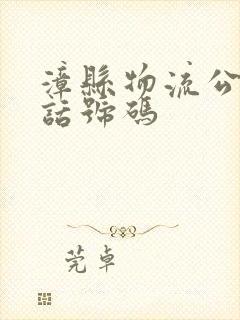 漳縣物流公
話號碼
莞卓